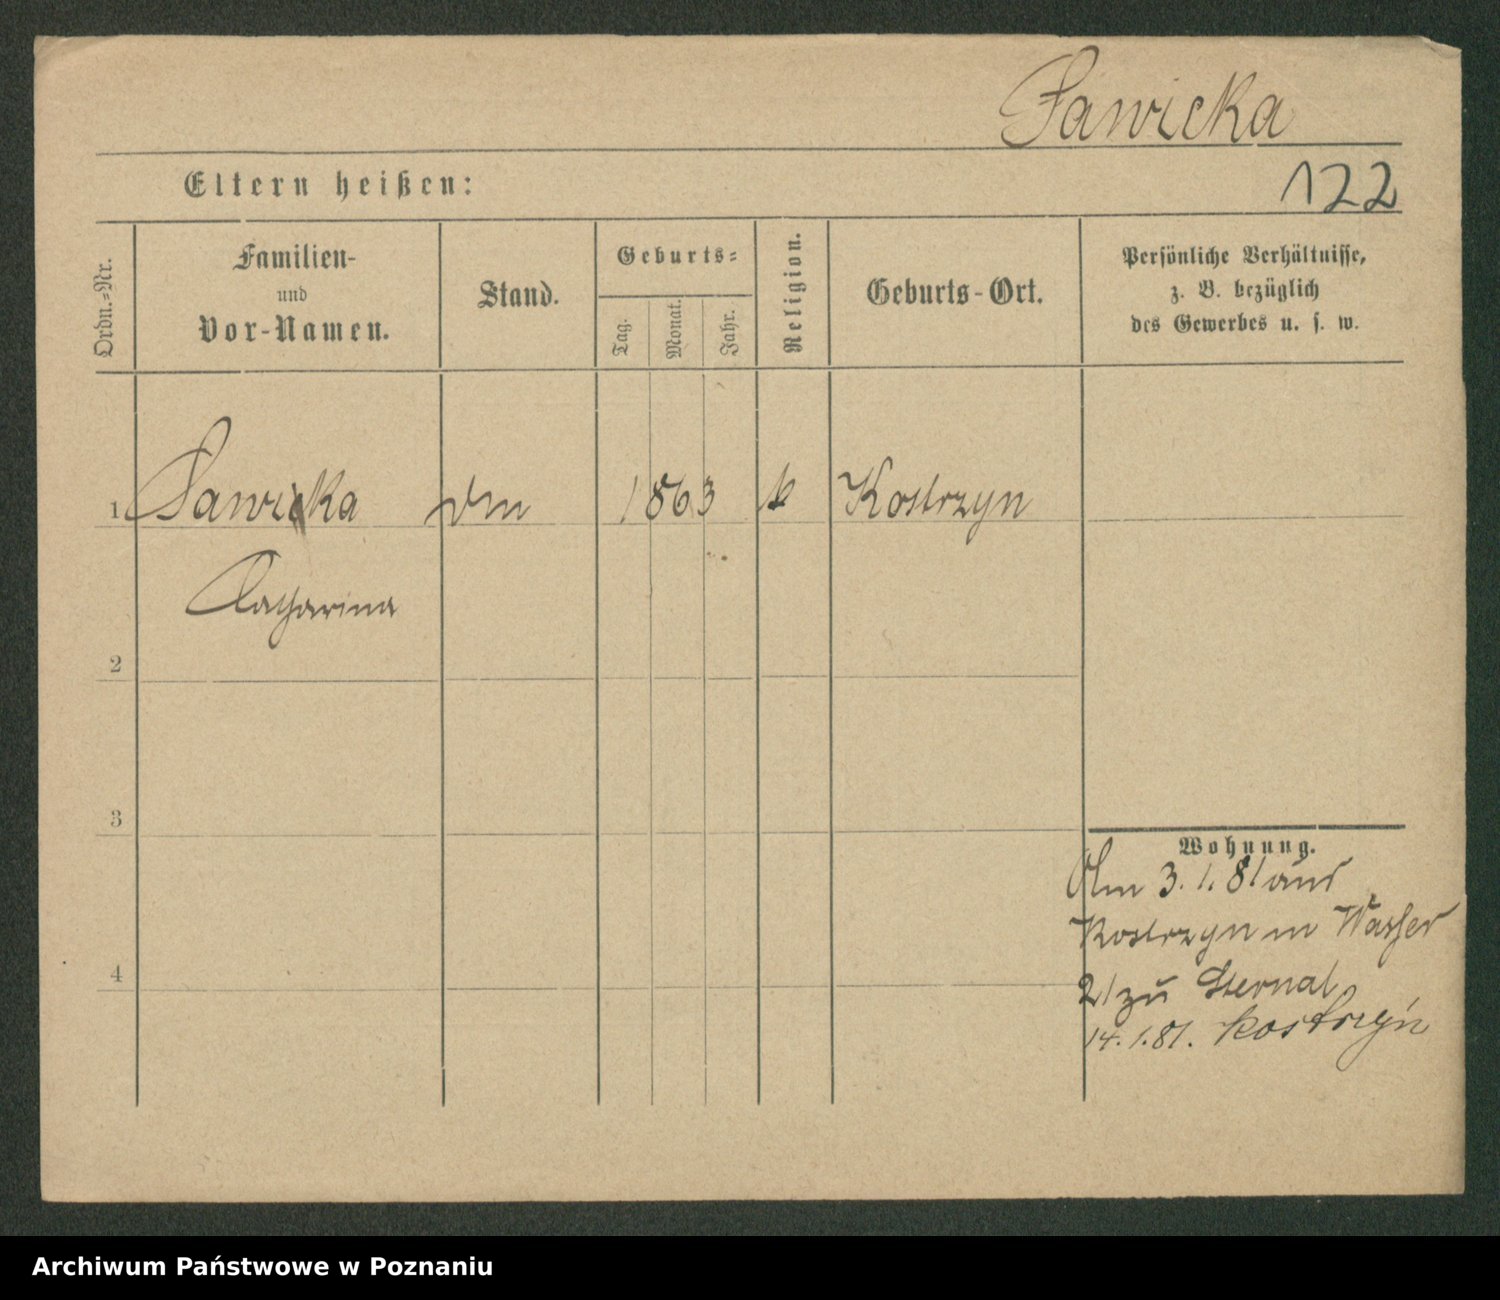 Sawicka
Eltern heißen:
122
Ordn.=Nr.
Familien-
und
Vor-Namen.
Stand.
Geburts=
Tag.
Monat.
Jahr.
Religion.
Geburts-Ort.
Persönliche Verhältnisse,
z. B. bezüglich
des Gewerbes u. s. w.
1 Sawicka 1863 Kostrzyn
Catharina
2
3
4
Wohnung.
Am 3.1.81 aus
Kostrzyn n Wasser
21 zu Sternal
14.1.81. Kostrzyń
Archiwum Państwowe w Poznaniu